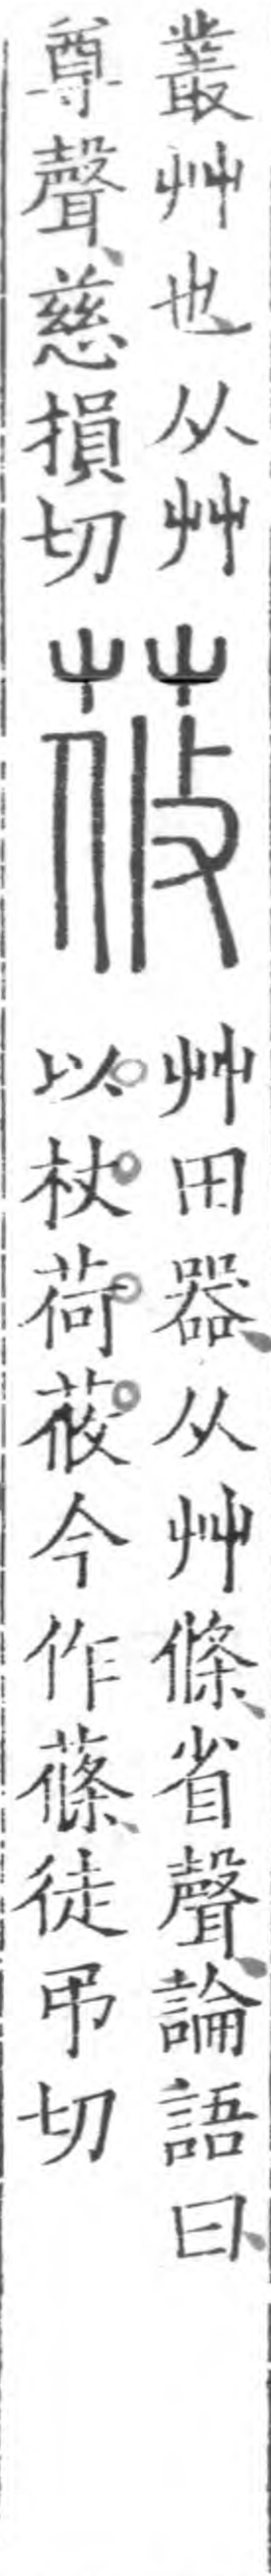 叢艸也从艸
尊聲慈損切
莜
艸田器从艸條省聲論語曰
以杖荷莜今作蓧徒弔切